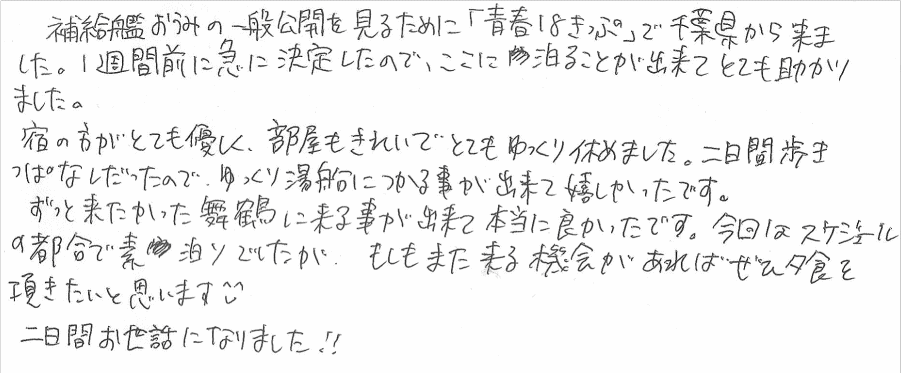 補給艦おうみの一般公開を見るために「青春18きっぷ」で千葉県から来ま
した。1週間前に急に決定したので、ここに泊ることが出来てとても助かり
ました。
宿の方がとても優しく、部屋もきれいでとてもゆっくり休めました。二日間歩き
っぱなしだったので、ゆっくり湯船につかる事が出来て嬉しかったです。
ずっと来たかった舞鶴に来る事が出来て本当に良かったです。今回はスケジュール
の都合で素泊りでしたが、もしもまた来る機会があればぜひ夕食を
頂きたいと思います
二日間お世話になりました!!